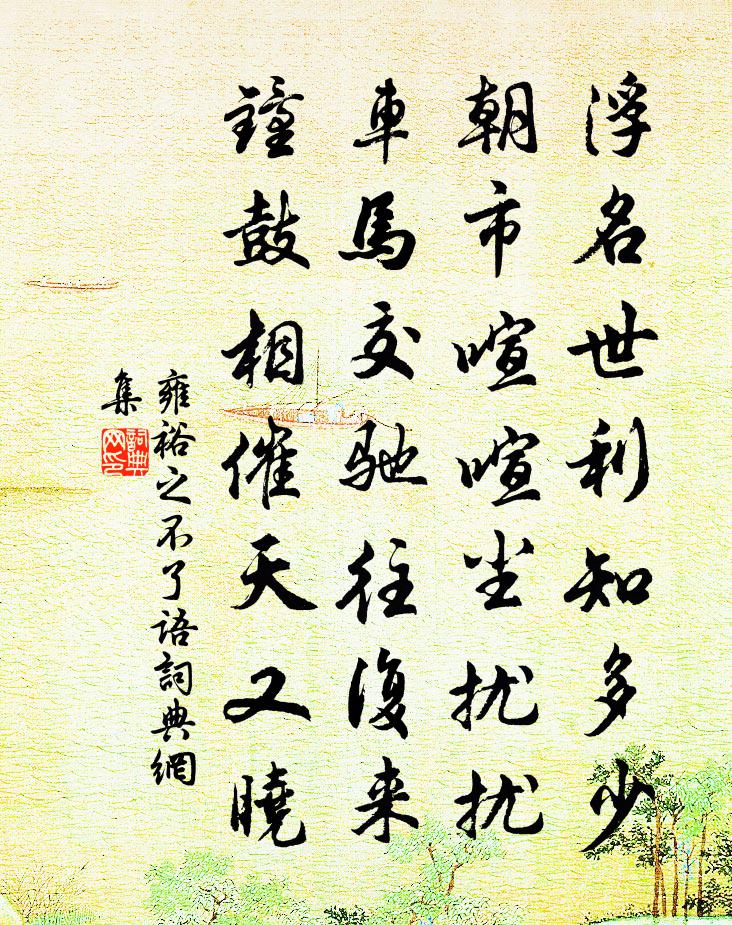 浮名世利知多少
朝市喧喧尘扰扰
車馬交馳往復来
鐘鼓相催天又曉
雍裕之不了語詞典網
集
詞典
网印